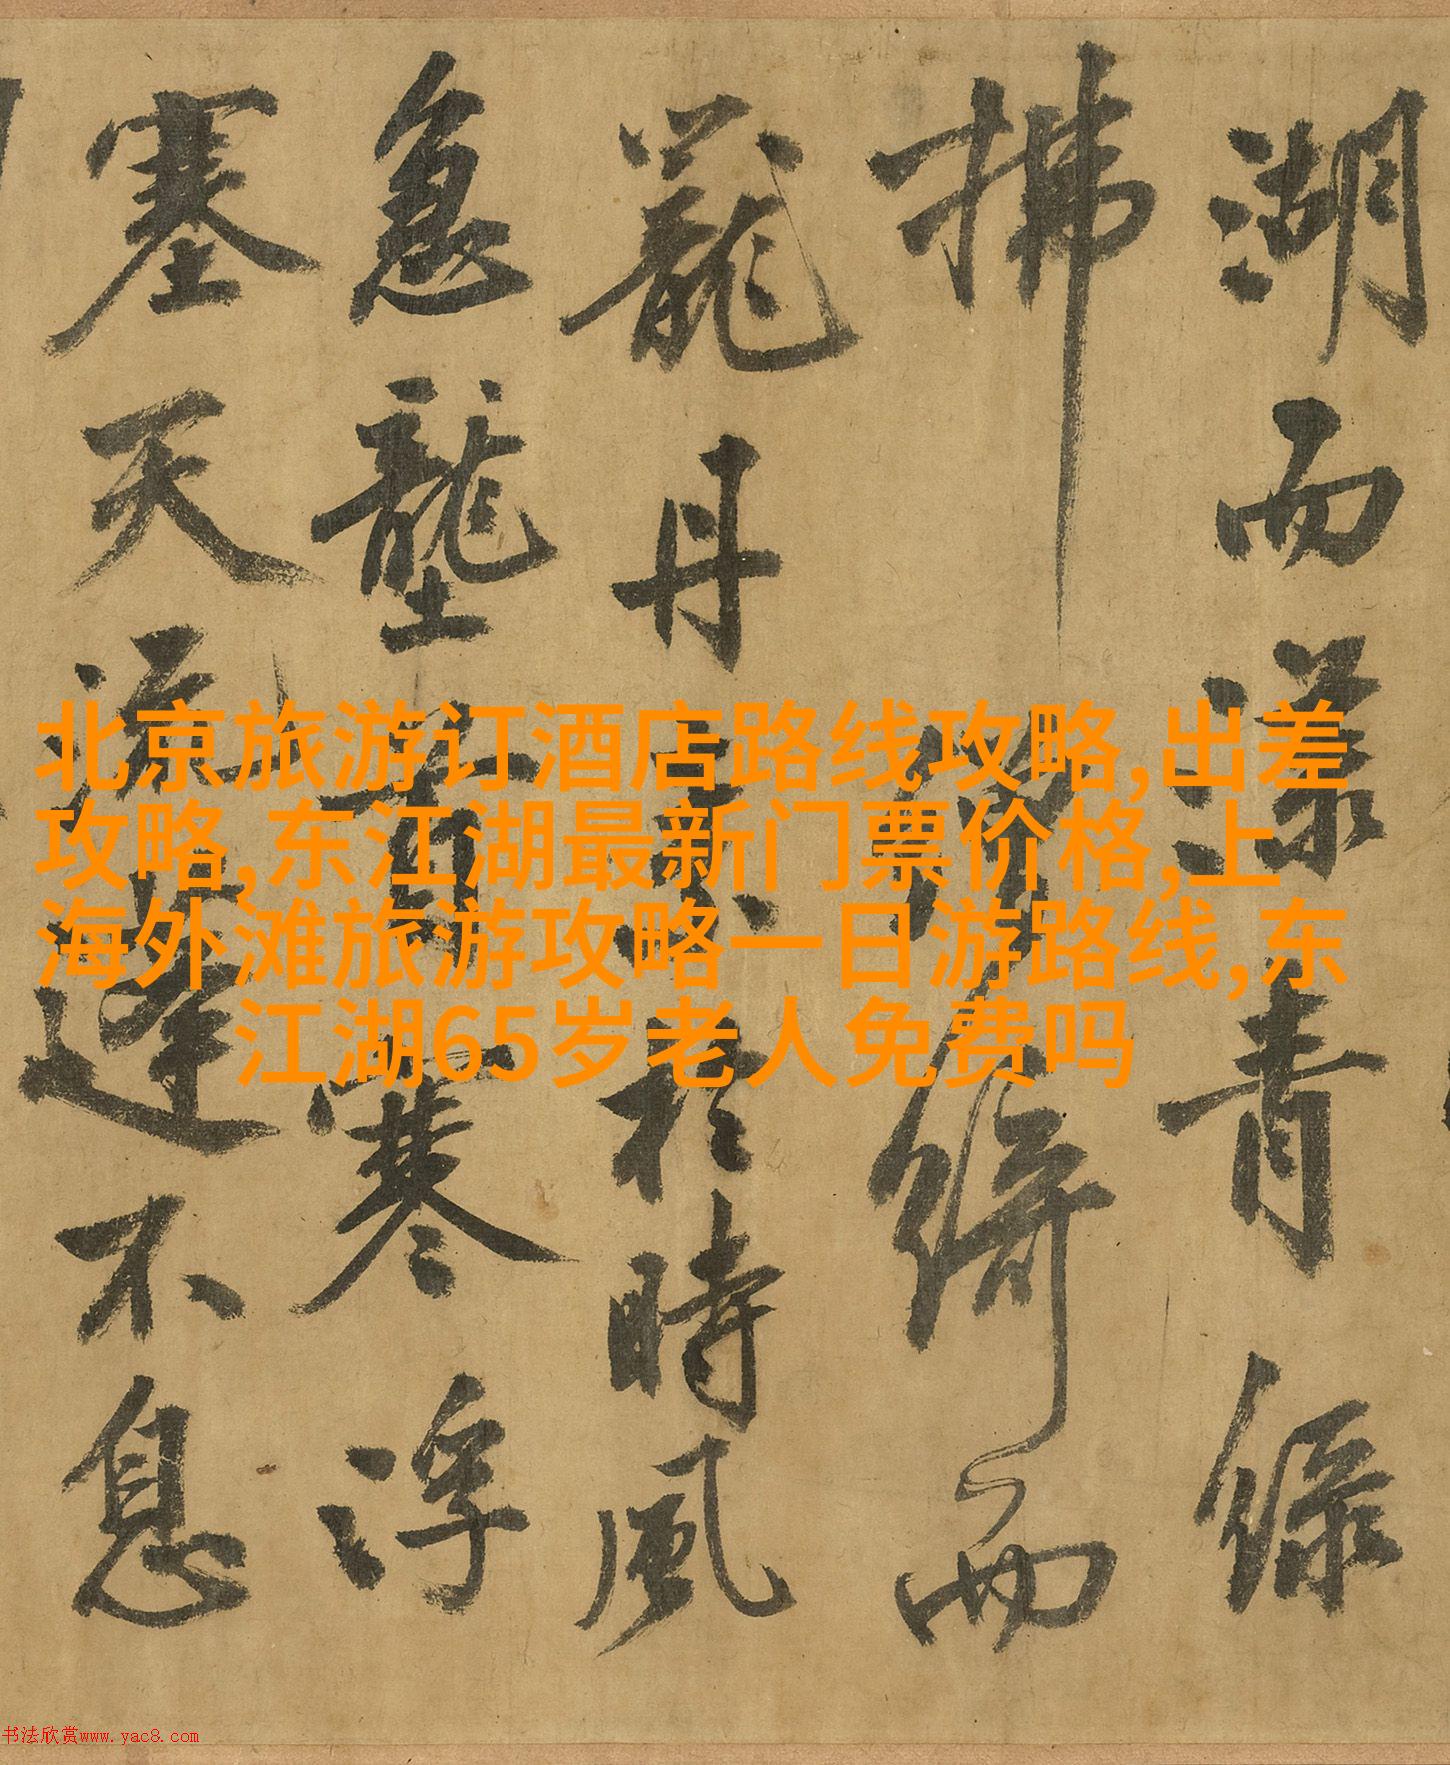 北京旅游订酒店路线攻略,出差
攻略,东江湖最新门票价格,上
海外滩旅游攻略一日游路线,东
江湖65岁老人免费吗
湖而漾青綠
拂綺而
籠丹於時風
急壟首寒浮
塞天流蓬不息
书法欣赏www.yac8.com